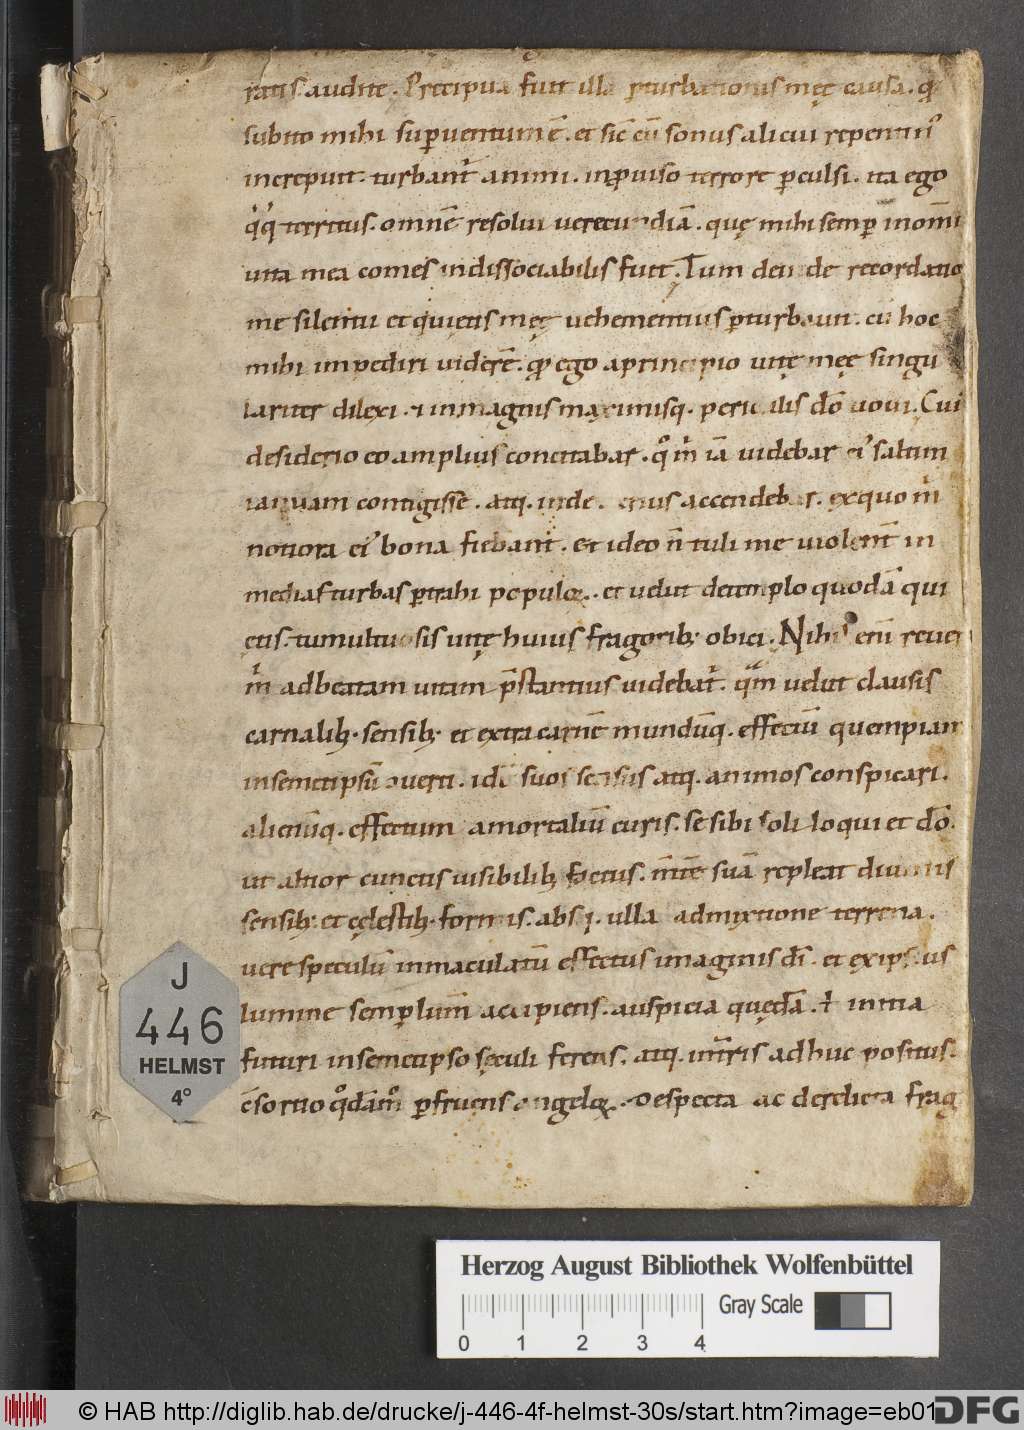 ratis. audite. Precipua fuit illa pturbationis męę causa. qđ
subito mihi supuentum ē. et sic cū sonus alicui repentin᾿
increpuit. turbant᷑ animi. inpuiso terrore pculsi. ita ego
q̊q; territus. omnē resolui uerecundiā. quę mihi semp in omi
uita mea comes indissociabilis fuit. Tum deinde recordatio
me silentii et quietis męę uehementius pturbauit. cū hoc
mihi impediri uiderē. qđ ego a principio uitę męę singu
lariter dilexi. & in magnis maximisq. periculis dō uoui. Cui
desiderio eo amplius concitabar. qō m̄ iā uidebar ei᾿ saltim
ianuam contigisse. atq. inde accendebar. ex quo m̄
notiora ei᾿ bona fiebant. et ideo n̄ tuli me uiolent᷑ in
medias turbas ptrahi populoꝝ. et uelut de templo quodā qui
etis. tumultuosis uitę huius fragorib; obici. Nihil eni reuer
m̄ ad beatam uitam p̄stantius uidebat᷑. qm̄ uelut clausis
carnalib; sensib; et extra carnē mundūq. effectū quempiam
in semetipsū uerti. id suos sensus atq. animos conspicari.
alienūq. effectum a mortaliū curis. se sibi soli loqui et dō.
ut altior cunctis uisibilib; factus. m̄tē suā repleat diuinis
sensib; et cęlestib; formis. absq. ulla admixtione terrena.
uere speculū inmaculatū effectus imaginis dī. et ex ipsius
lumine semp lum̄ accipiens. auspicia quędā. & initia
futuri in semetipso sęculi ferens. atq. in tr̄ris adhuc positus.
c̄sortio qōdam̄ pfruens angeloꝝ. Despecta ac derelicta frag
J
446
HELMST
4°
Herzog August Bibliothek Wolfenbüttel
Gray Scale
0 1 2 3 4
© HAB http://diglib.hab.de/drucke/j-446-4f-helmst-30s/start.htm?image=eb01
DFG